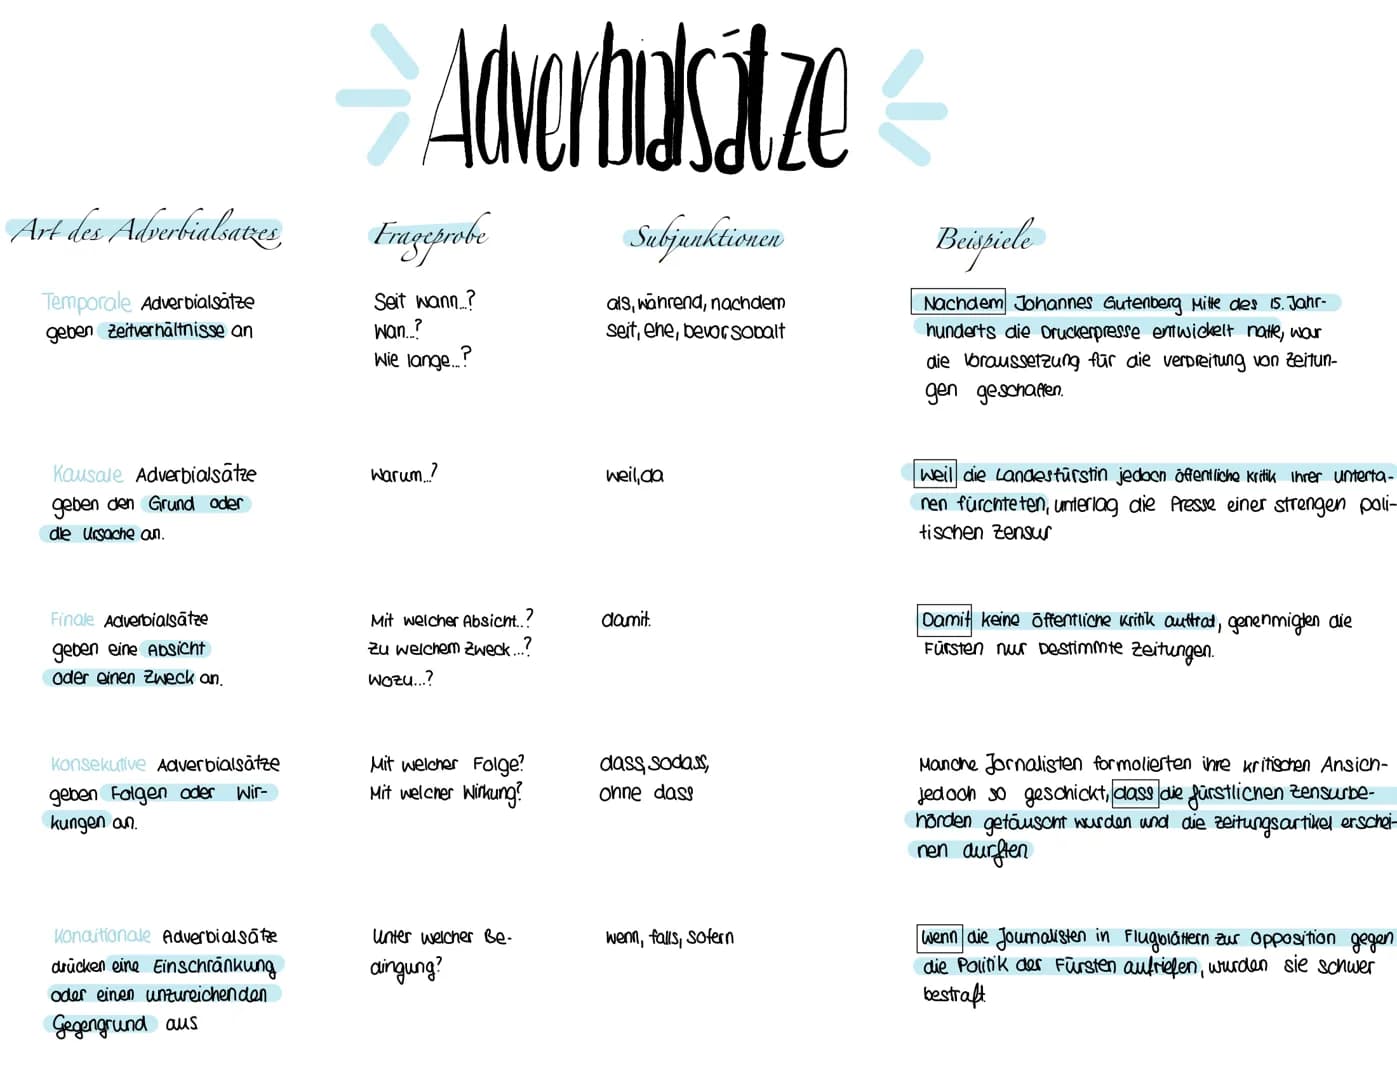 Adverbialsätze
Art des Adverbialsatzes
Frageprobe
Subjunktionen
Beispiele
Temporale Adverbialsätze
geben Zeitverhältnisse an
Seit wann...?
Wan...?
Wie lange...?
als, während, nachdem
seit, ehe, bevor sobalt
Nachdem Johannes Gutenberg Mitte des 15. Jahr-
hunderts die Druckerpresse entwickelt hatte, war
die Voraussetzung für die verbreitung von Zeitun-
gen geschaffen.
Kausale Adverbialsätze
geben den Grund oder
die Ursache an.
Warum...?
weil, da
Weil die Landesfürstin jedoch öffentliche Kritik ihrer unterta-
nen fürchteten, unterlag die Presse einer strengen poli-
tischen Zensur
Finale Adverbialsätze
geben eine Absicht
oder einen Zweck an.
Mit welcher Absicht..?
Zu welchem Zweck...?
Wozu...?
damit.
Damit keine öffentliche Kritik auftrat, genehmigten die
Fürsten nur bestimmte Zeitungen.
Konsekutive Adverbialsätze
geben Folgen oder Wir-
kungen an.
Mit welcher Folge?
Mit welcher Wirkung?
dass, sodass,
ohne dass
Manche Jornalisten formolierten ihre kritischen Ansich-
jedoch so geschickt, dass die fürstlichen Zensurbe-
hörden getäuscht wurden und die Zeitungsartikel erschei-
nen durften
Konditionale Adverbialsätze
drücken eine Einschränkung
oder einen unzureichenden
Gegengrund aus
Unter welcher Be-
dingung?
wenn, falls, sofern
Wenn die Journalisten in Flugblättern zur Opposition gegen
die Politik der Fürsten aufriefen, wurden sie schwer
bestraft